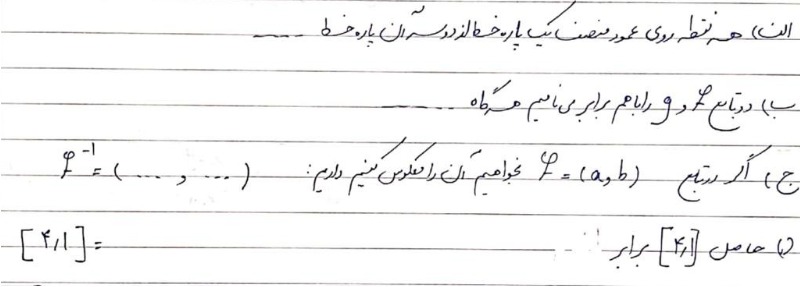 الف) هر نقطه روی عمود منصف یک پاره خط از دو سر آن پاره خط .....
ب) دو تابع f و g را با هم برابر می نامیم هرگاه .....
ج) اگر در تابع f = (a,b) بخواهیم آن را معکوس کنیم داریم: f⁻¹ = (... , ...)
د) حاصل [۴٫۱] برابر ... [۴٫۱] =